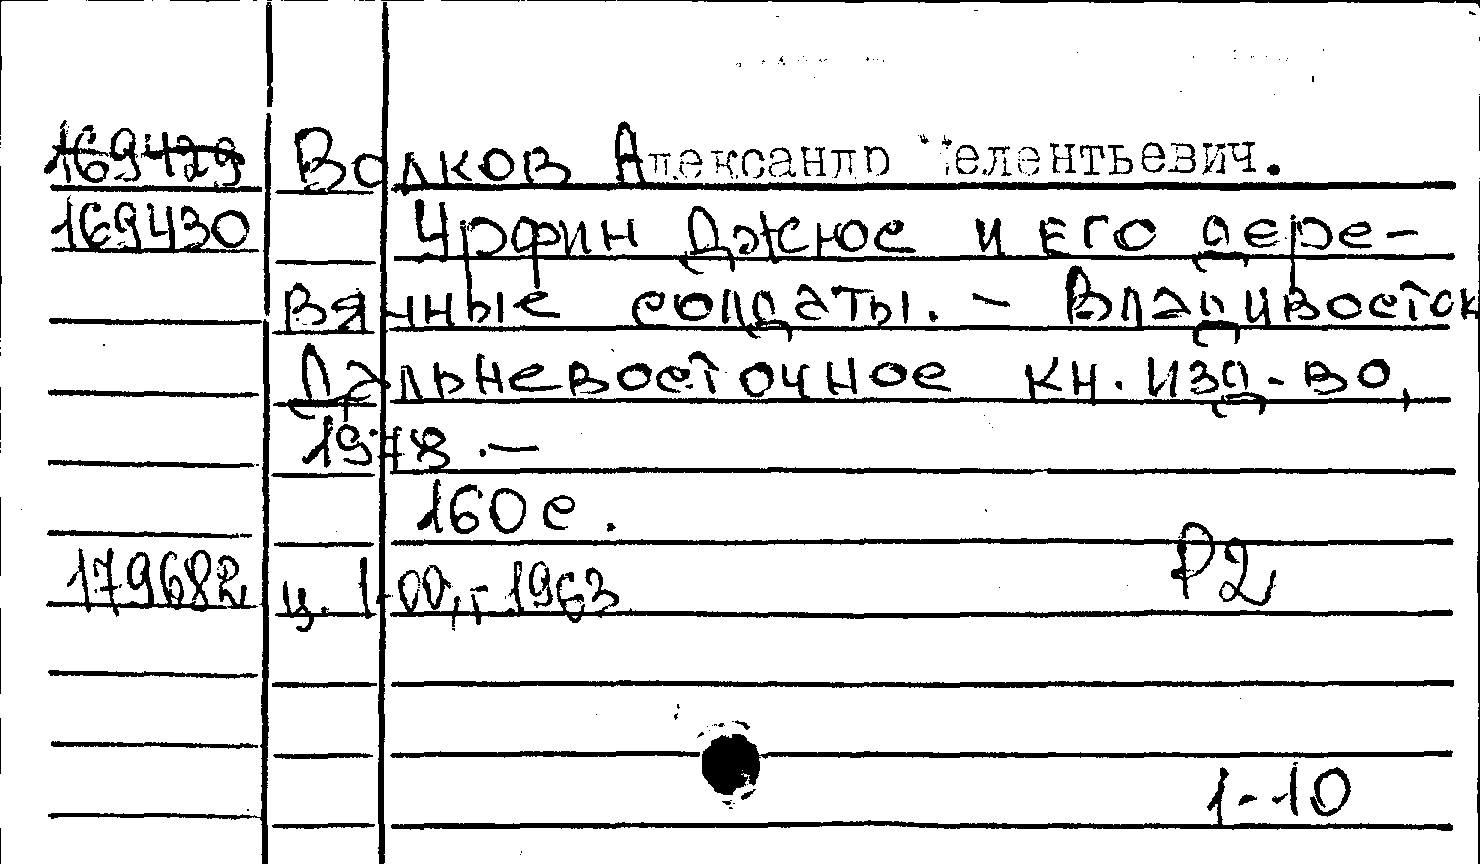 169429 Волков Александр Мелентьевич.
169430 Урфин Джюс и его дере-
вянные солдаты. - Владивосток
Дальневосточное кн. изд-во,
1978. -
160 с.
Р2
179682 ц. 1-00, г 1963
1-10